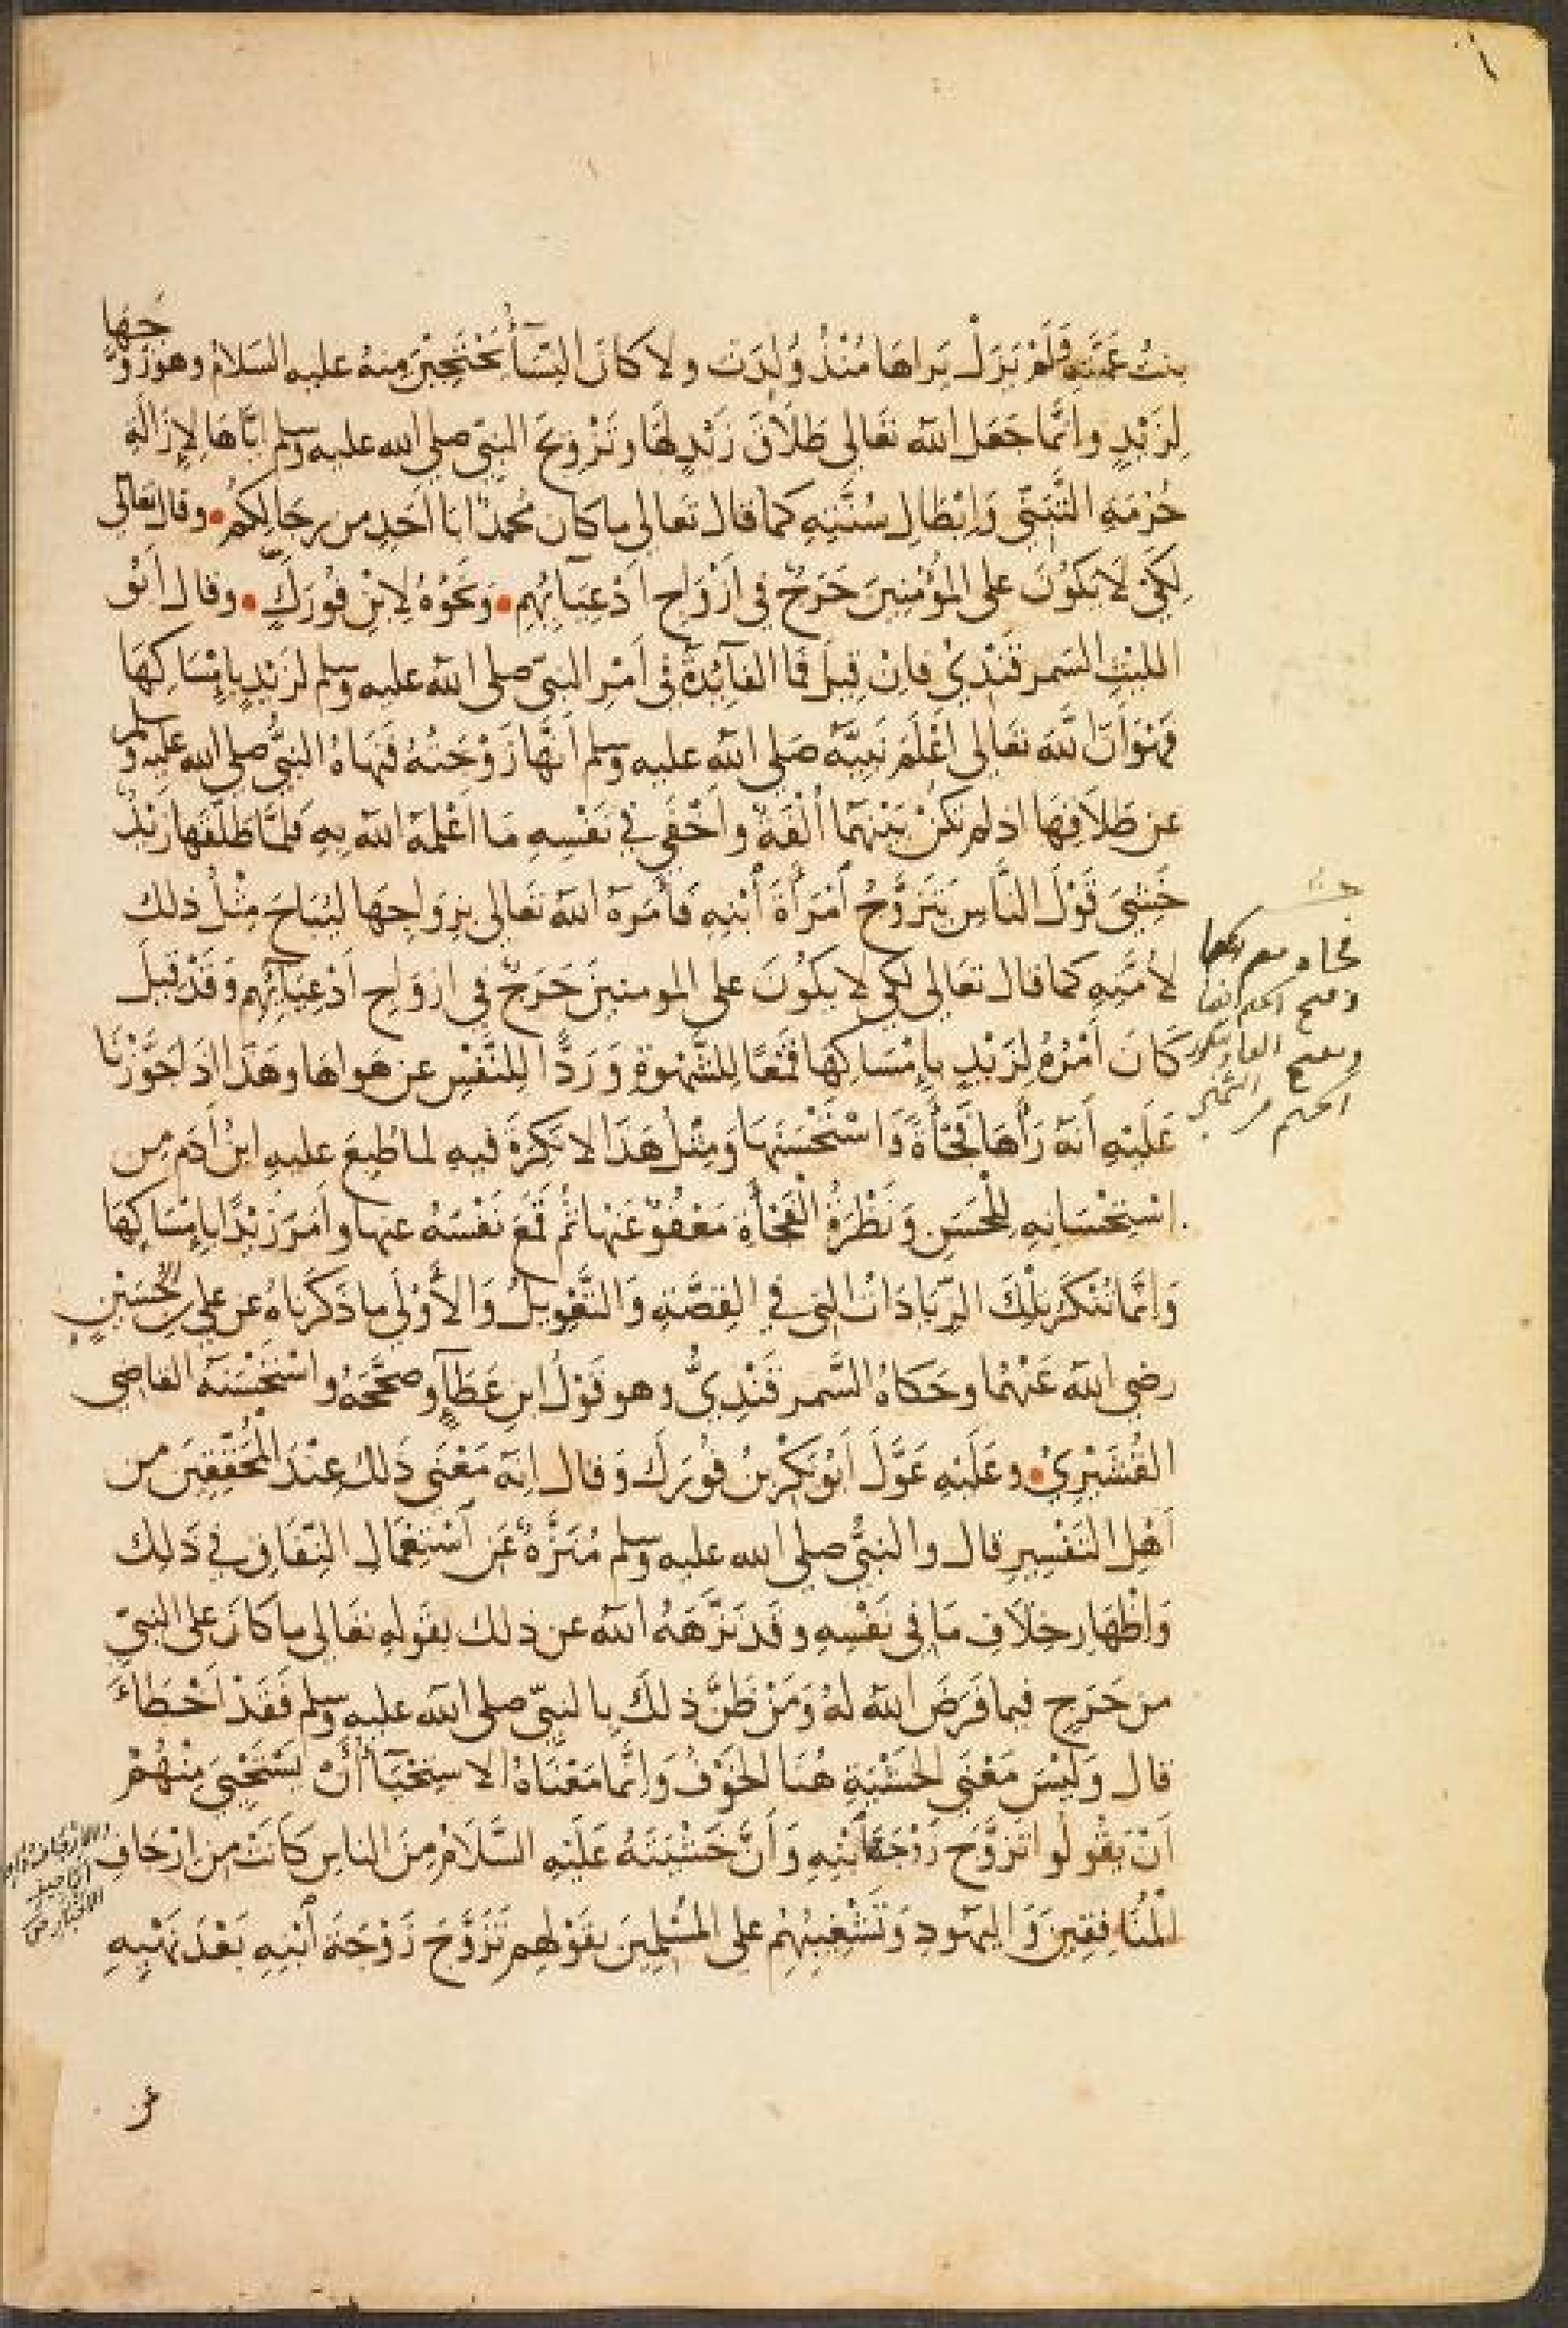 بنتُ عَمَّتِهِ فَلَمْ يَزَلْ يَراهَا مُنْذُ وُلِدَت ولا كانَ النِّسَآءُ يَحْتَجِبْنَ مِنهُ عليه السَلامُ وهو زَوَّجَها
لِزَيْدٍ وانَّما جَعَل اللَّه تعَالى طَلَاقَ زَيْدٍ لهَا وتَزْوِيجَ النبِيّ صلى الله عليه وسلم ايَّاهَا لإزَالَةِ
حُرْمَةِ التَّبَنّي وَابْطَالِ سُنَّتِهِ كما قال تَعالى ما كان مُحمدٌ ابَا اَحَدٍ من رجَالِكُم • وقال تعَالى
لِكَىْ لَا يَكُوْنَ على المُؤْمِنِينَ حَرَجٌ في اَزْوَاجِ اَدْعِيَآئِهِم • ونَحْوُهُ لِابْنِ فُوْرَكٍ • وقال اَبُو
الليْثِ السَمرقَنْدِيْ فاِنْ قِيلَ فَمَا الفَآئِدَةُ في اَمْرِ النبيّ صلى اللّه عليه وسلم لزَيْدٍ بامْسَاكِهَا
فهْوَ اَنَّ اللَّه تعَالى اعْلَمَ نَبِيَّهُ صَلى اللَّه عليه وسلم اَنَّهَا زَوْجَتُهُ فَنَهَاهُ النبيُّ صلى الله عليه وسلم
عن طَلَاقِهَا اذ لم تكنْ بَيْنَهُمَا اُلْفَةٌ واَخْفَى في نَفْسِهِ مَا اعْلمَهُ اللَّه بِهِ فَلمَّا طَلَّقَها زَيْدٌ
خَشِيَ قَوْلَ النَّاسِ يَتَزَوَّجُ اَمْرَأَةَ اَبْنِهِ فَاَمَرَهُ اللَّه تعَالى بزوَاجِهَا ليُبَاحَ مِثْلُ ذلك
لأُمَّتِهِ كما قال تعَالى لكى لا يكُوْنَ على المومنينَ حَرَجٌ في ازوَاجِ اَدْعِيَآئِهِم وَقَدْ قيلَ
كَانَ اَمْرُهُ لِزَيْدٍ بِاِمْسَاكِهَا قَمْعًا لِلشَّهْوَةِ وَرَدًّا لِلنَّفْسِ عن هَواها وهَذَا اذَا جَوَّزْنَا
عَلَيْهِ اَنَّهُ رَأَهَا فَجْأَةً وَاسْتَحْسَنَهَا وَمِثْلُ هَذَا لا نُكْرَةَ فيهِ لما طُبِعَ عليهِ ابنُ اَدَمَ مِن
اسْتِحْسَانِهِ لِلْحَسَنِ وَنَظْرَةُ الفَجْأَةِ مَعْفُوٌّ عَنها ثُمّ قَمَعَ نَفْسَهُ عنها واَمَرَ زَيْدًا بِامْسَاكِهَا
وَاِنَّمَا تُنْكَرُ تِلْكَ الزّيَادَاتُ التى في القِصَّةِ وَالتَّعْوِيلُ وَالأَوْلَى ما ذَكَرْناهُ عن علي بن حُسَيْنٍ
رضي اللَّه عَنْهُما وحَكَاهُ السَّمرقَنْدِيُّ وهو قَوْلُ ابن عَطَآءٍ وصَحَّحَهُ واسْتَحْسَنَهُ القاضِي
القُشَيْرِيْ • وعَلَيْهِ عَوَّلَ اَبُو بَكْرِ بْنُ فُوْرَكَ وَقال اِنّه مَعْنَى ذَلكَ عِنْدَ المُحَقِّقِينَ مِن
اَهْلِ التَفْسِيرِ قال والنبيُّ صلى الله عليه وسلم مُنَزَّهٌ عَن اَسْتِعْمَالِ النِفَاقِ في ذَلِك
وَاِظْهَارِ خِلَافِ مَا في نَفْسِهِ وقَد نَزَّهَهُ اللَّهُ عن ذلك بقَولِهِ تعَالى ما كانَ على النبيّ
من حَرَجٍ فيما فَرَضَ اللَّه لهُ وَمَنْ ظَنَّ ذلكَ بالنبىّ صلى اللَّه عليه وسلم فقَدْ اَخْطَاءَ
قال وَلَيْسَ مَعْنَى الخَشْيَةِ هُنَا الخَوْفُ وَاِنَّما مَعْنَاهُ الاسْتِحْيَآءُ اَنْ يَسْتَحْيِيَ مِنْهُمْ
اَنْ يَقُولُوا تَزَوَّجَ زَوْجَةَ اَبْنِهِ وَاَنَّ خَشْيَتَهُ عَلَيْهِ السَّلَامُ مِنَ الناسِ كانَتْ مِن اِرْجَافِ
المُنَافِقِينَ وَاليَهُودِ وَتَشْغِيبِهِمْ على المُسْلِمِينَ بقَوْلهِم تَزَوَّجَ زَوْجَةَ اَبْنِهِ بَعْدَ نَهْيِهِ